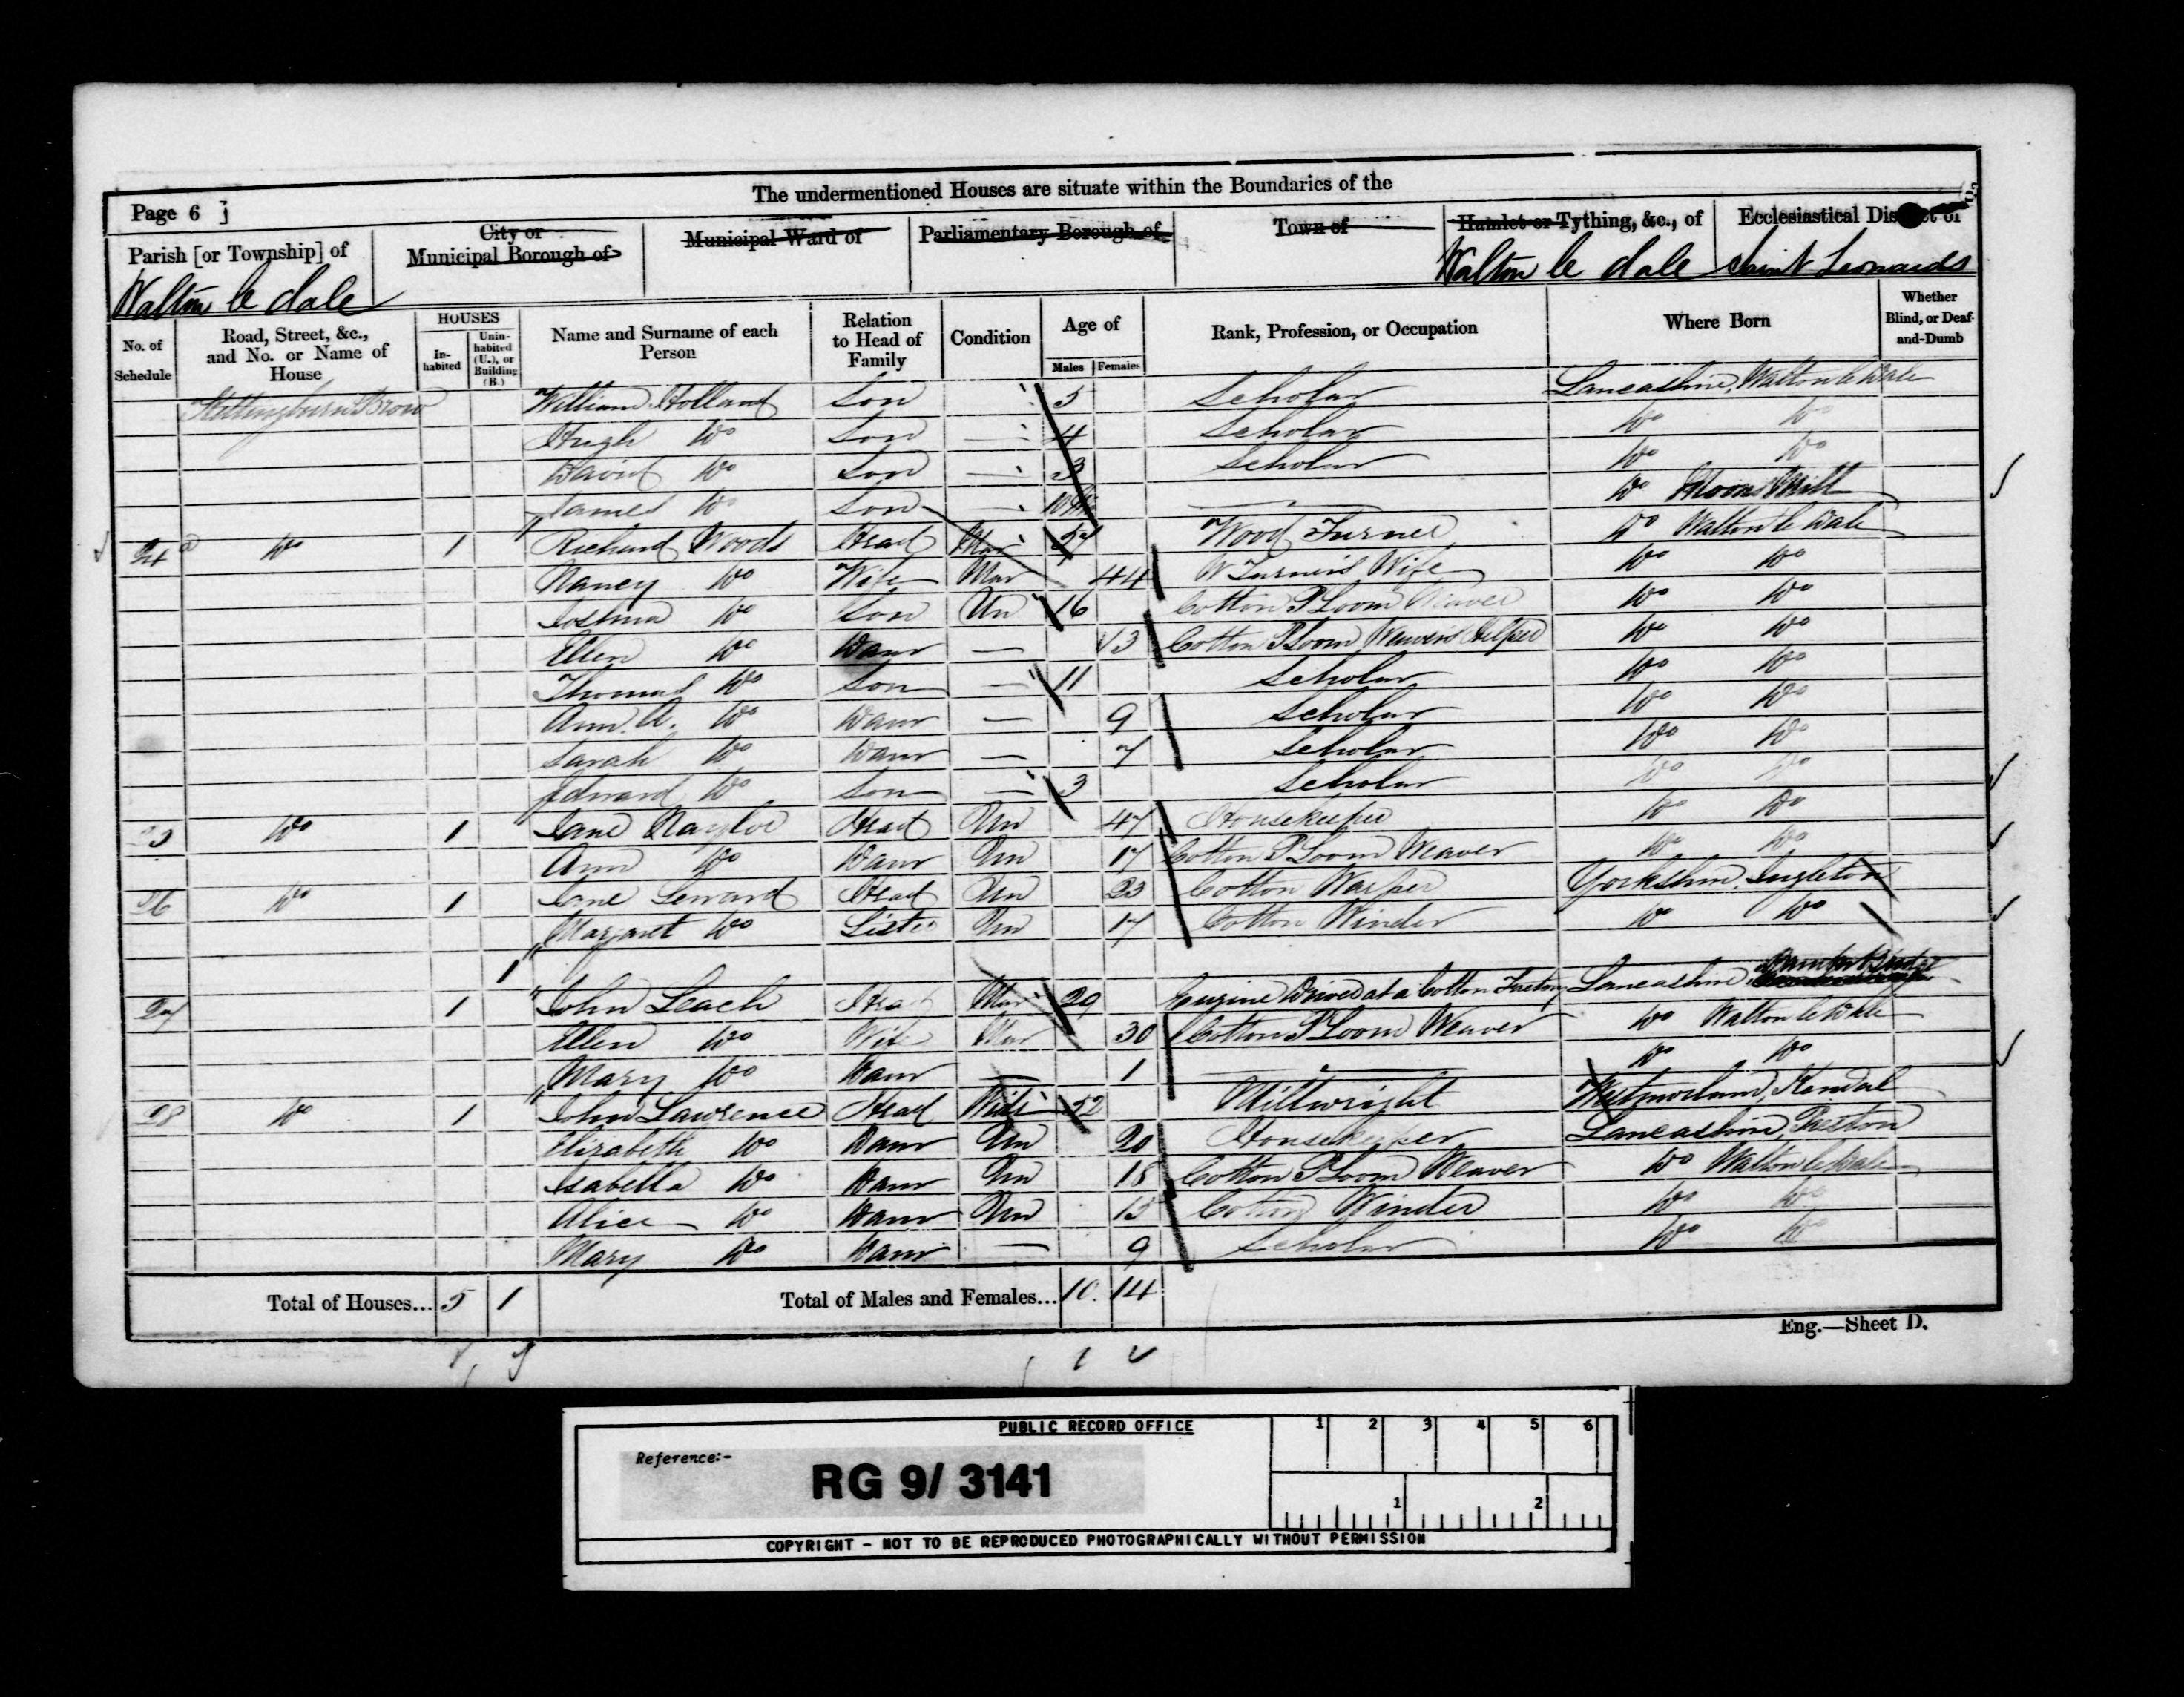 The undermentioned Houses are situate within the Boundaries of the
Page 6 ]
Parish [or Township] of
City or Municipal Borough of
Municipal Ward of
Parliamentary Borough of
Town of
Hamlet or Tything, &c., of
Ecclesiastical District of
Walton le dale
Walton le dale
Saint Leonards
No. of Schedule
Road, Street, &c., and No. or Name of House
HOUSES
In-habited
Unin-habited (U.), or Building (B.)
Name and Surname of each Person
Relation to Head of Family
Condition
Age of
Males
Females
Rank, Profession, or Occupation
Where Born
Whether Blind, or Deaf-and-Dumb
Brow William Holland Son 5 Scholar Lancashire, Walton le Dale
Hugh Do Son — 4 Scholar Do Do
David Do Son — 3 Scholar Do Do
James Do Son — 10 — Do Moons Mill
24 Do 1 Richard Woods Head Mar Wood Turner Do Walton le Dale
Nancy Do Wife Mar 44 W Turner's Wife Do Do
Joshua Do Son Un 16 Cotton P Loom Weaver Do Do
Ellen Do Daur — 13 Cotton P Loom Weavers Helper Do Do
Thomas Do Son — 11 Scholar Do Do
Ann A. Do Daur — 9 Scholar Do Do
Sarah Do Daur — 7 Scholar Do Do
Edward Do Son — 3 Scholar Do Do
25 Do 1 Jane Naylor Head Un 47 Housekeeper Do Do
Ann Do Daur Un 17 Cotton P Loom Weaver Do Do
26 Do 1 Jane Head Un 23 Cotton Warper Yorkshire, Ingleton
Margaret Do Sister Un 17 Cotton Winder Do Do
1
27 1 John Leach Head Mar 29 Engine Driver at a Cotton Factory Lancashire, Bamber Bridge
Ellen Do Wife Mar 30 Cotton P Loom Weaver Do Walton le Dale
Mary Do Daur — 1 — Do Do
28 Do 1 John Lawrence Head Wid 52 Millwright Westmorland, Kendal
Elizabeth Do Daur Un 20 Housekeeper Lancashire, Preston
Isabella Do Daur Un 18 Cotton P Loom Weaver Do Walton le Dale
Alice Do Daur Un Cotton Winder Do Do
Mary Do Daur — 9 Scholar Do Do
Total of Houses... 5 1 Total of Males and Females... 10. 14
Eng.—Sheet D.
PUBLIC RECORD OFFICE
1 2 3 4 5 6
Reference:-
RG 9/ 3141
1 2
COPYRIGHT - NOT TO BE REPRODUCED PHOTOGRAPHICALLY WITHOUT PERMISSION